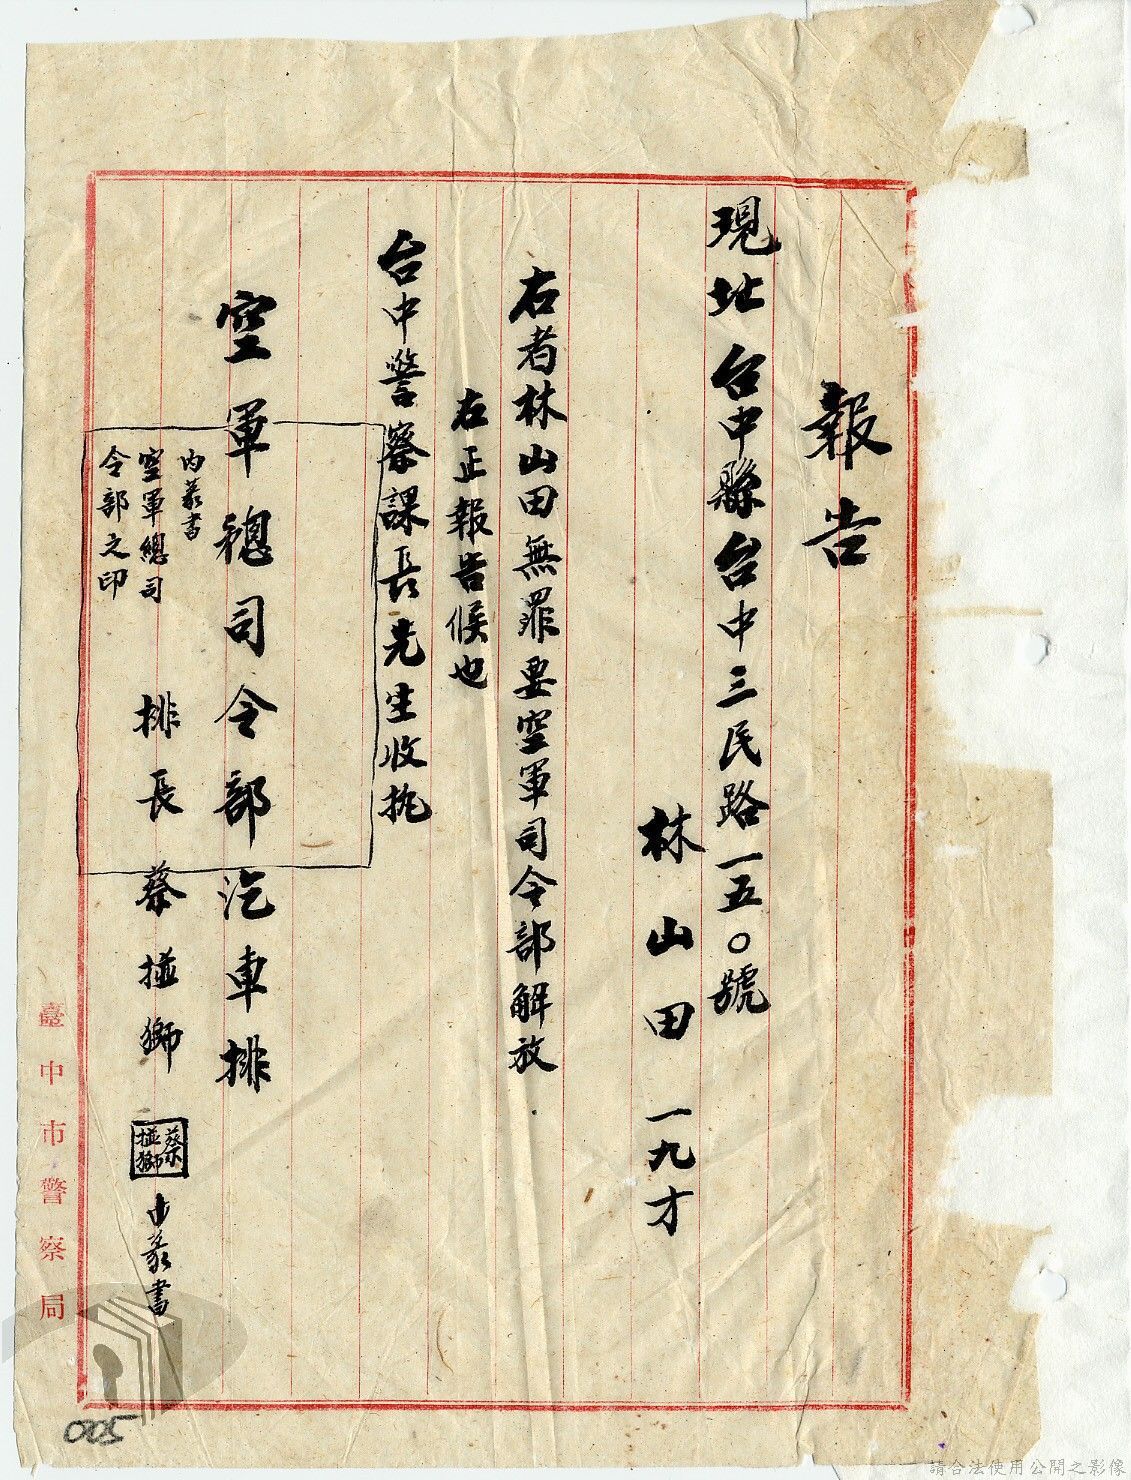 報告
現址 台中縣台中三民路一五〇號
林山田 一九才
右者林山田無罪要空軍司令部解放
右正報告候也
台中警察課長先生收执
空軍總司令部汽車排
內篆書
空軍總司
令部之印
排長 蔡掽獅
蔡
掽獅
小篆書
臺中市警察局
005
請合法使用公開之影像